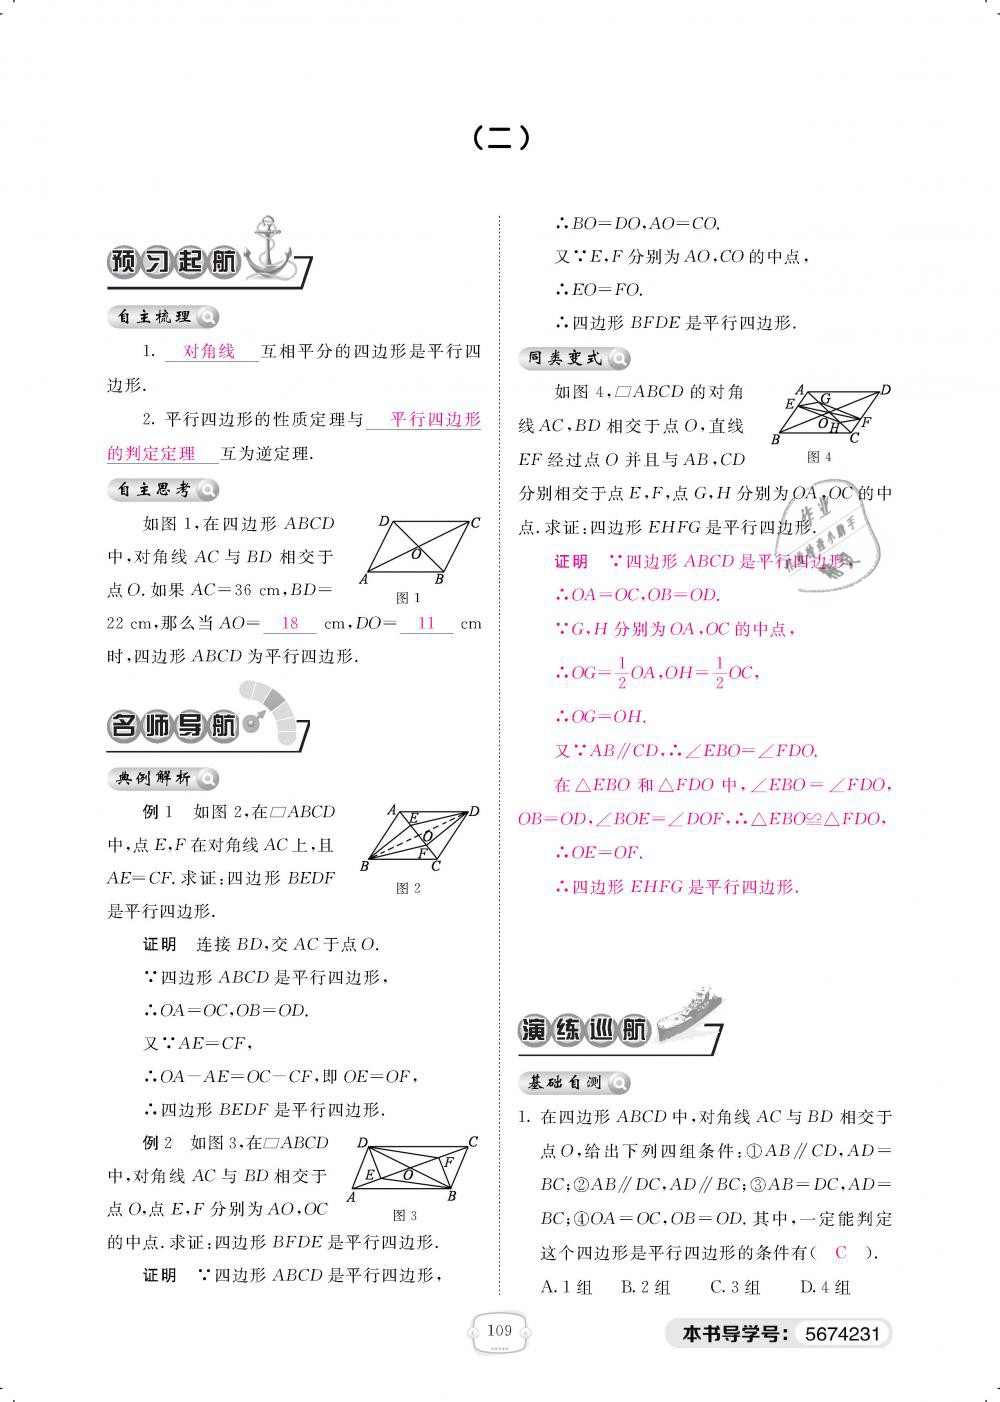 （二）
预习起航
自主梳理
1. 对角线 互相平分的四边形是平行四
边形.
2. 平行四边形的性质定理与 平行四边形
的判定定理 互为逆定理.
自主思考
如图 1,在四边形 ABCD
中,对角线 AC 与 BD 相交于
点 O. 如果 AC=36 cm,BD=
22 cm,那么当 AO= 18 cm,DO= 11 cm
时,四边形 ABCD 为平行四边形.
D
C
O
A
B
图 1
名师导航
典例解析
例 1 如图 2,在▱ABCD
中,点 E,F 在对角线 AC 上,且
AE=CF. 求证:四边形 BEDF
是平行四边形.
A
E
D
O
F
B
C
图 2
证明 连接 BD,交 AC 于点 O.
∵四边形 ABCD 是平行四边形,
∴OA=OC,OB=OD.
又∵AE=CF,
∴OA-AE=OC-CF,即 OE=OF,
∴四边形 BEDF 是平行四边形.
例 2 如图 3,在▱ABCD
中,对角线 AC 与 BD 相交于
点 O,点 E,F 分别为 AO,OC
的中点. 求证:四边形 BFDE 是平行四边形.
D
C
F
E
O
A
B
图 3
证明 ∵四边形 ABCD 是平行四边形,
∴BO=DO,AO=CO.
又∵E,F 分别为 AO,CO 的中点,
∴EO=FO.
∴四边形 BFDE 是平行四边形.
同类变式
如图 4,▱ABCD 的对角
线 AC,BD 相交于点 O,直线
EF 经过点 O 并且与 AB,CD
分别相交于点 E,F,点 G,H 分别为 OA,OC 的中
点. 求证:四边形 EHFG 是平行四边形.
A
D
E
G
O
H
F
B
C
图 4
证明 ∵四边形 ABCD 是平行四边形,
∴OA=OC,OB=OD.
∵G,H 分别为 OA,OC 的中点,
∴OG=1/2OA,OH=1/2OC,
∴OG=OH.
又∵AB∥CD,∴∠EBO=∠FDO.
在△EBO 和△FDO 中,∠EBO=∠FDO,
OB=OD,∠BOE=∠DOF,∴△EBO≌△FDO,
∴OE=OF.
∴四边形 EHFG 是平行四边形.
演练巡航
基础自测
1. 在四边形 ABCD 中,对角线 AC 与 BD 相交于
点 O,给出下列四组条件:①AB∥CD,AD=
BC;②AB∥DC,AD∥BC;③AB=DC,AD=
BC;④OA=OC,OB=OD. 其中,一定能判定
这个四边形是平行四边形的条件有( C ).
A. 1 组 B. 2 组 C. 3 组 D. 4 组
109
本书导学号：5674231